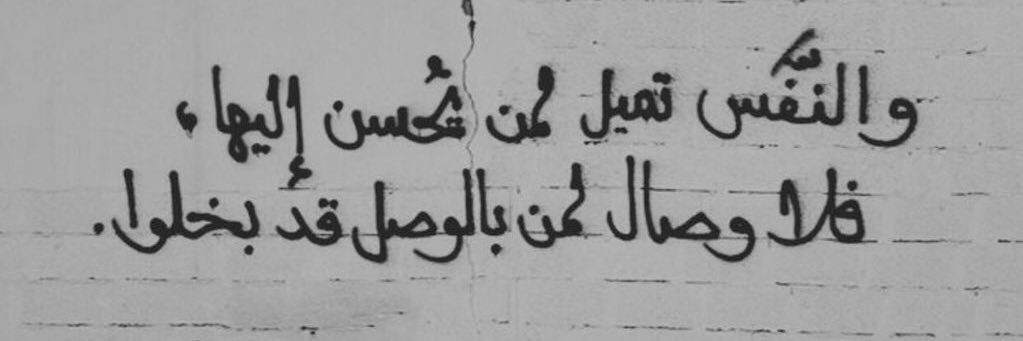 والنَّفس تميل لمن يُحسن إليها،
فلا وصال لمن بالوصل قدْ بخلوا.